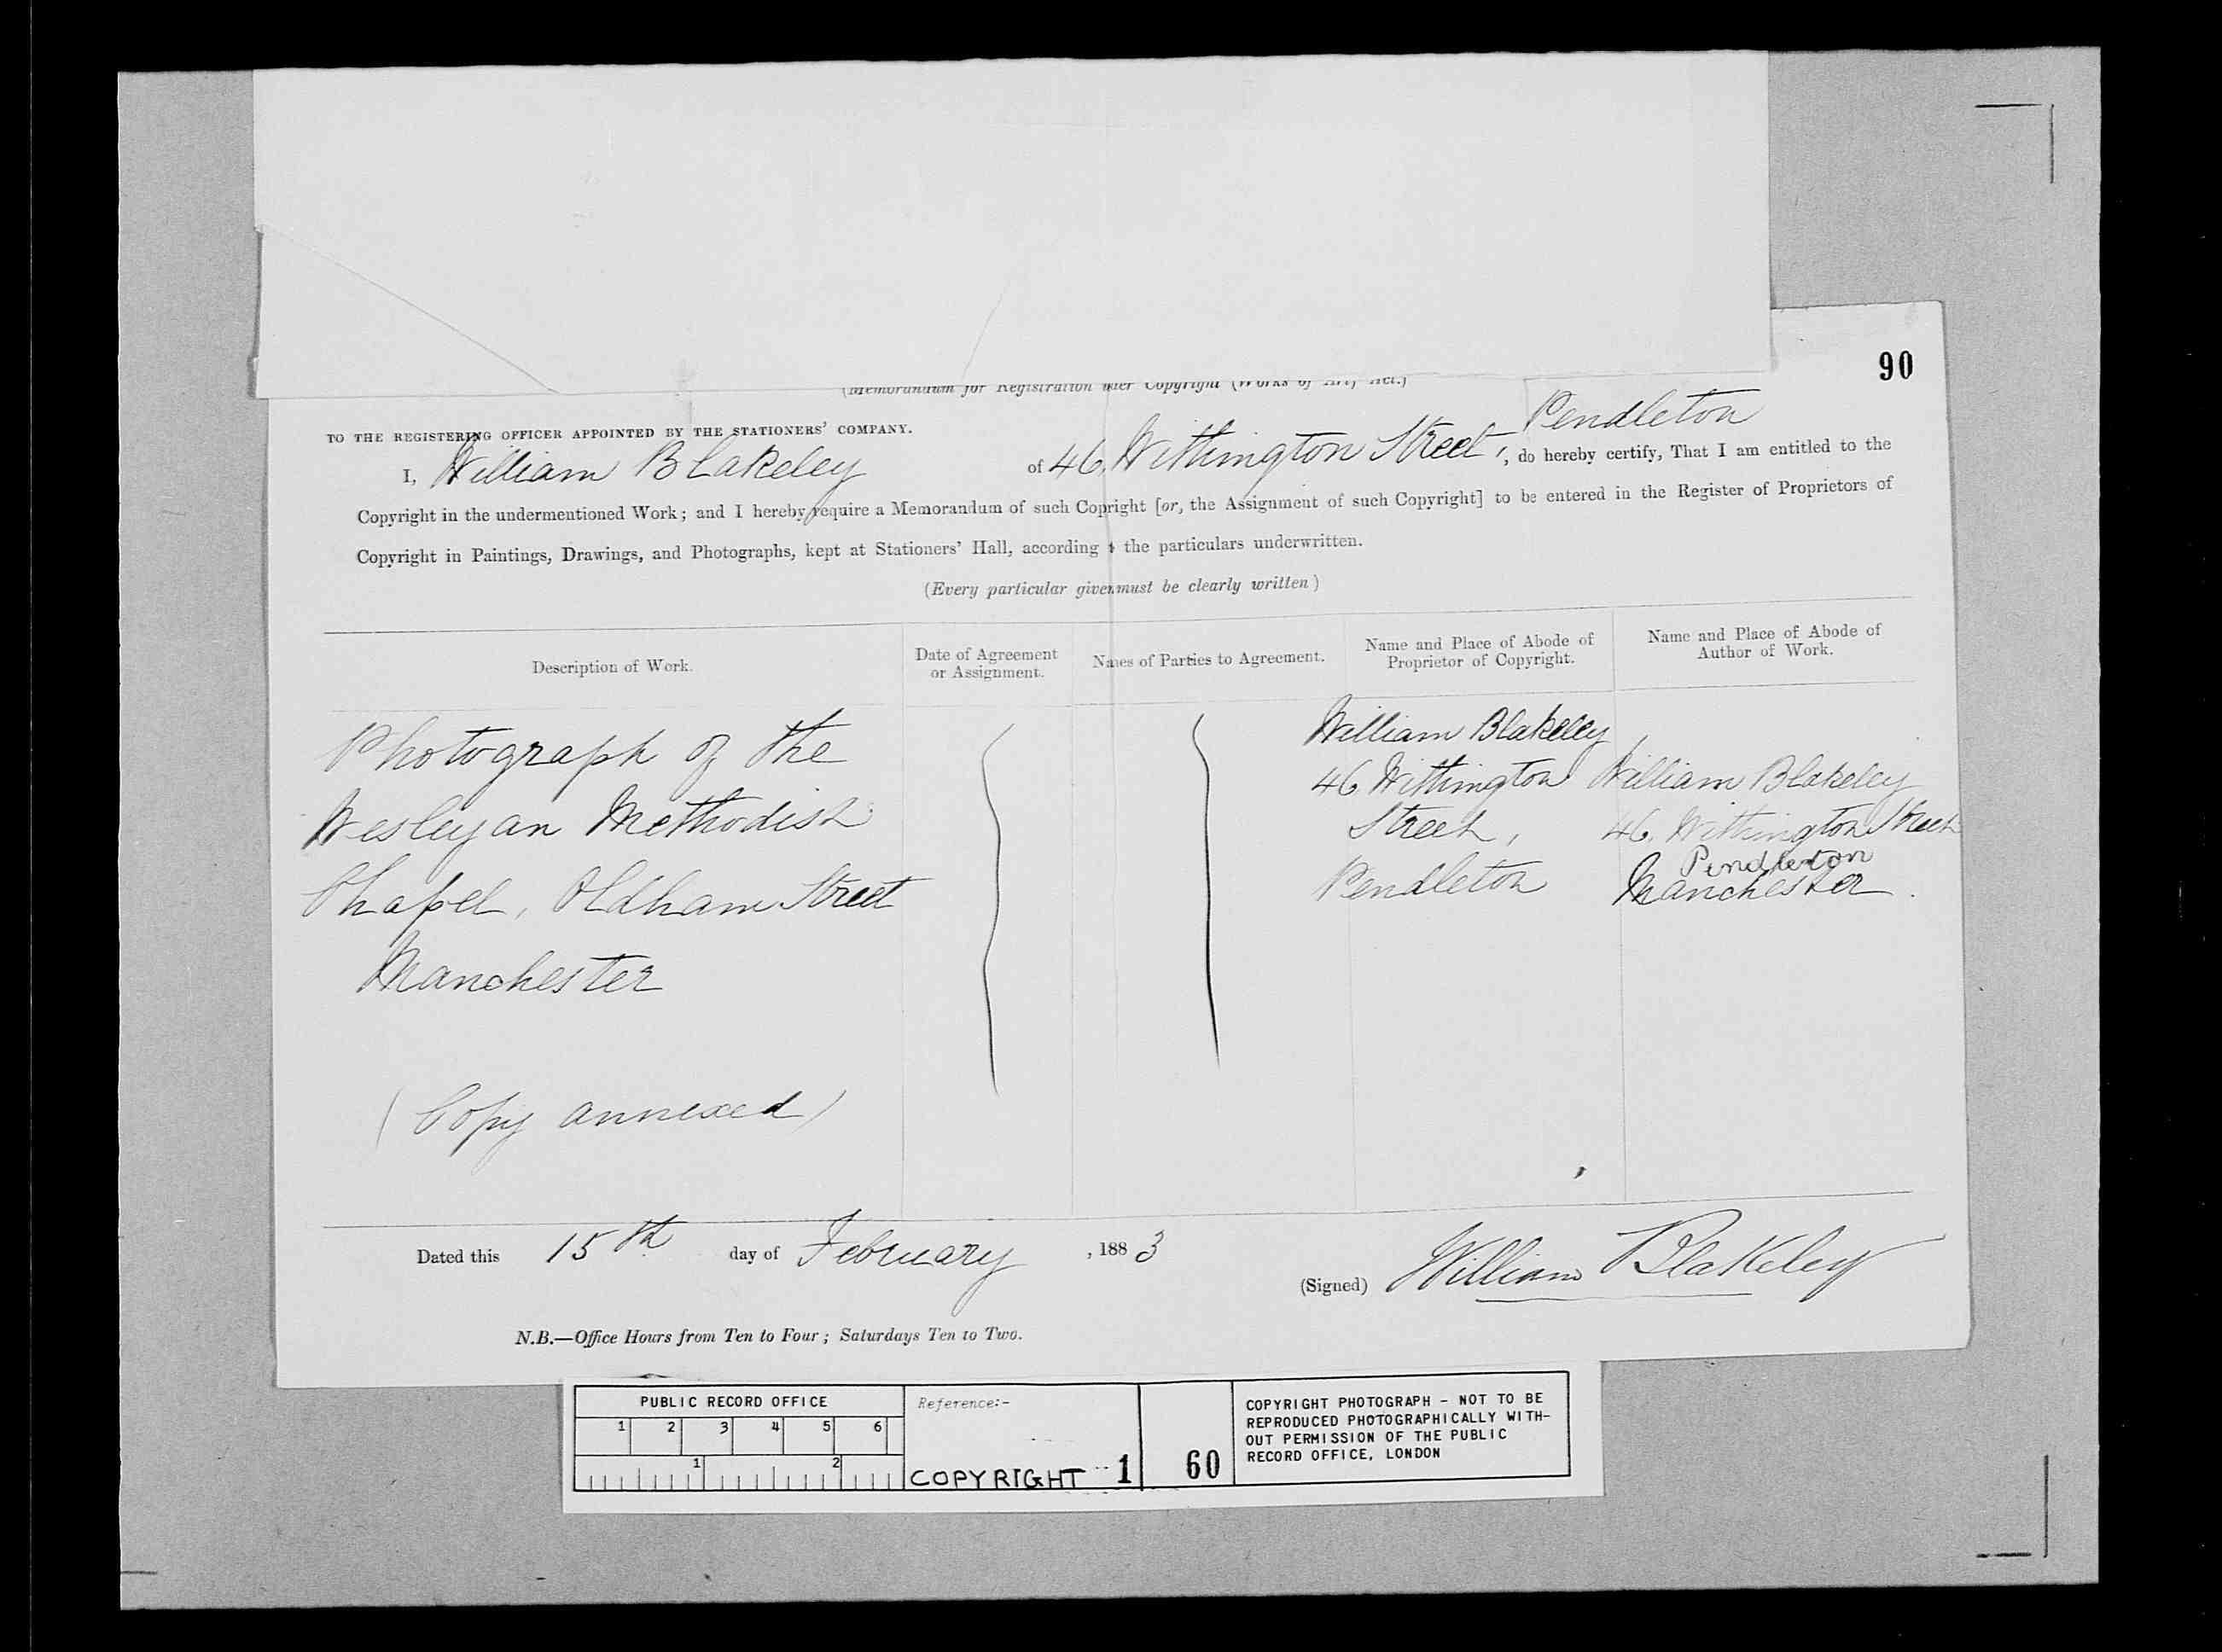 90
(Memorandum for Registration under Copyright (Works of Art) Act.)
Pendleton
TO THE REGISTERING OFFICER APPOINTED BY THE STATIONERS' COMPANY.
I, William Blakeley of 46, Withington Street, do hereby certify, That I am entitled to the
Copyright in the undermentioned Work; and I hereby require a Memorandum of such Copyright [or, the Assignment of such Copyright] to be entered in the Register of Proprietors of
Copyright in Paintings, Drawings, and Photographs, kept at Stationers' Hall, according to the particulars underwritten.
(Every particular given must be clearly written)
Description of Work.
Date of Agreement
or Assignment.
Names of Parties to Agreement.
Name and Place of Abode of
Proprietor of Copyright.
Name and Place of Abode of
Author of Work.
Photograph of the
Wesleyan Methodist
Chapel, Oldham Street
Manchester
(Copy annexed)
William Blakeley
46 Withington
Street,
Pendleton
William Blakeley
46, Withington Street
Pendleton
Manchester.
Dated this 15th day of February, 1883
(Signed) William Blakeley
N.B.—Office Hours from Ten to Four; Saturdays Ten to Two.
PUBLIC RECORD OFFICE
1 2 3 4 5 6
1 2
Reference:-
COPYRIGHT 1 60
COPYRIGHT PHOTOGRAPH - NOT TO BE
REPRODUCED PHOTOGRAPHICALLY WITH-
OUT PERMISSION OF THE PUBLIC
RECORD OFFICE, LONDON